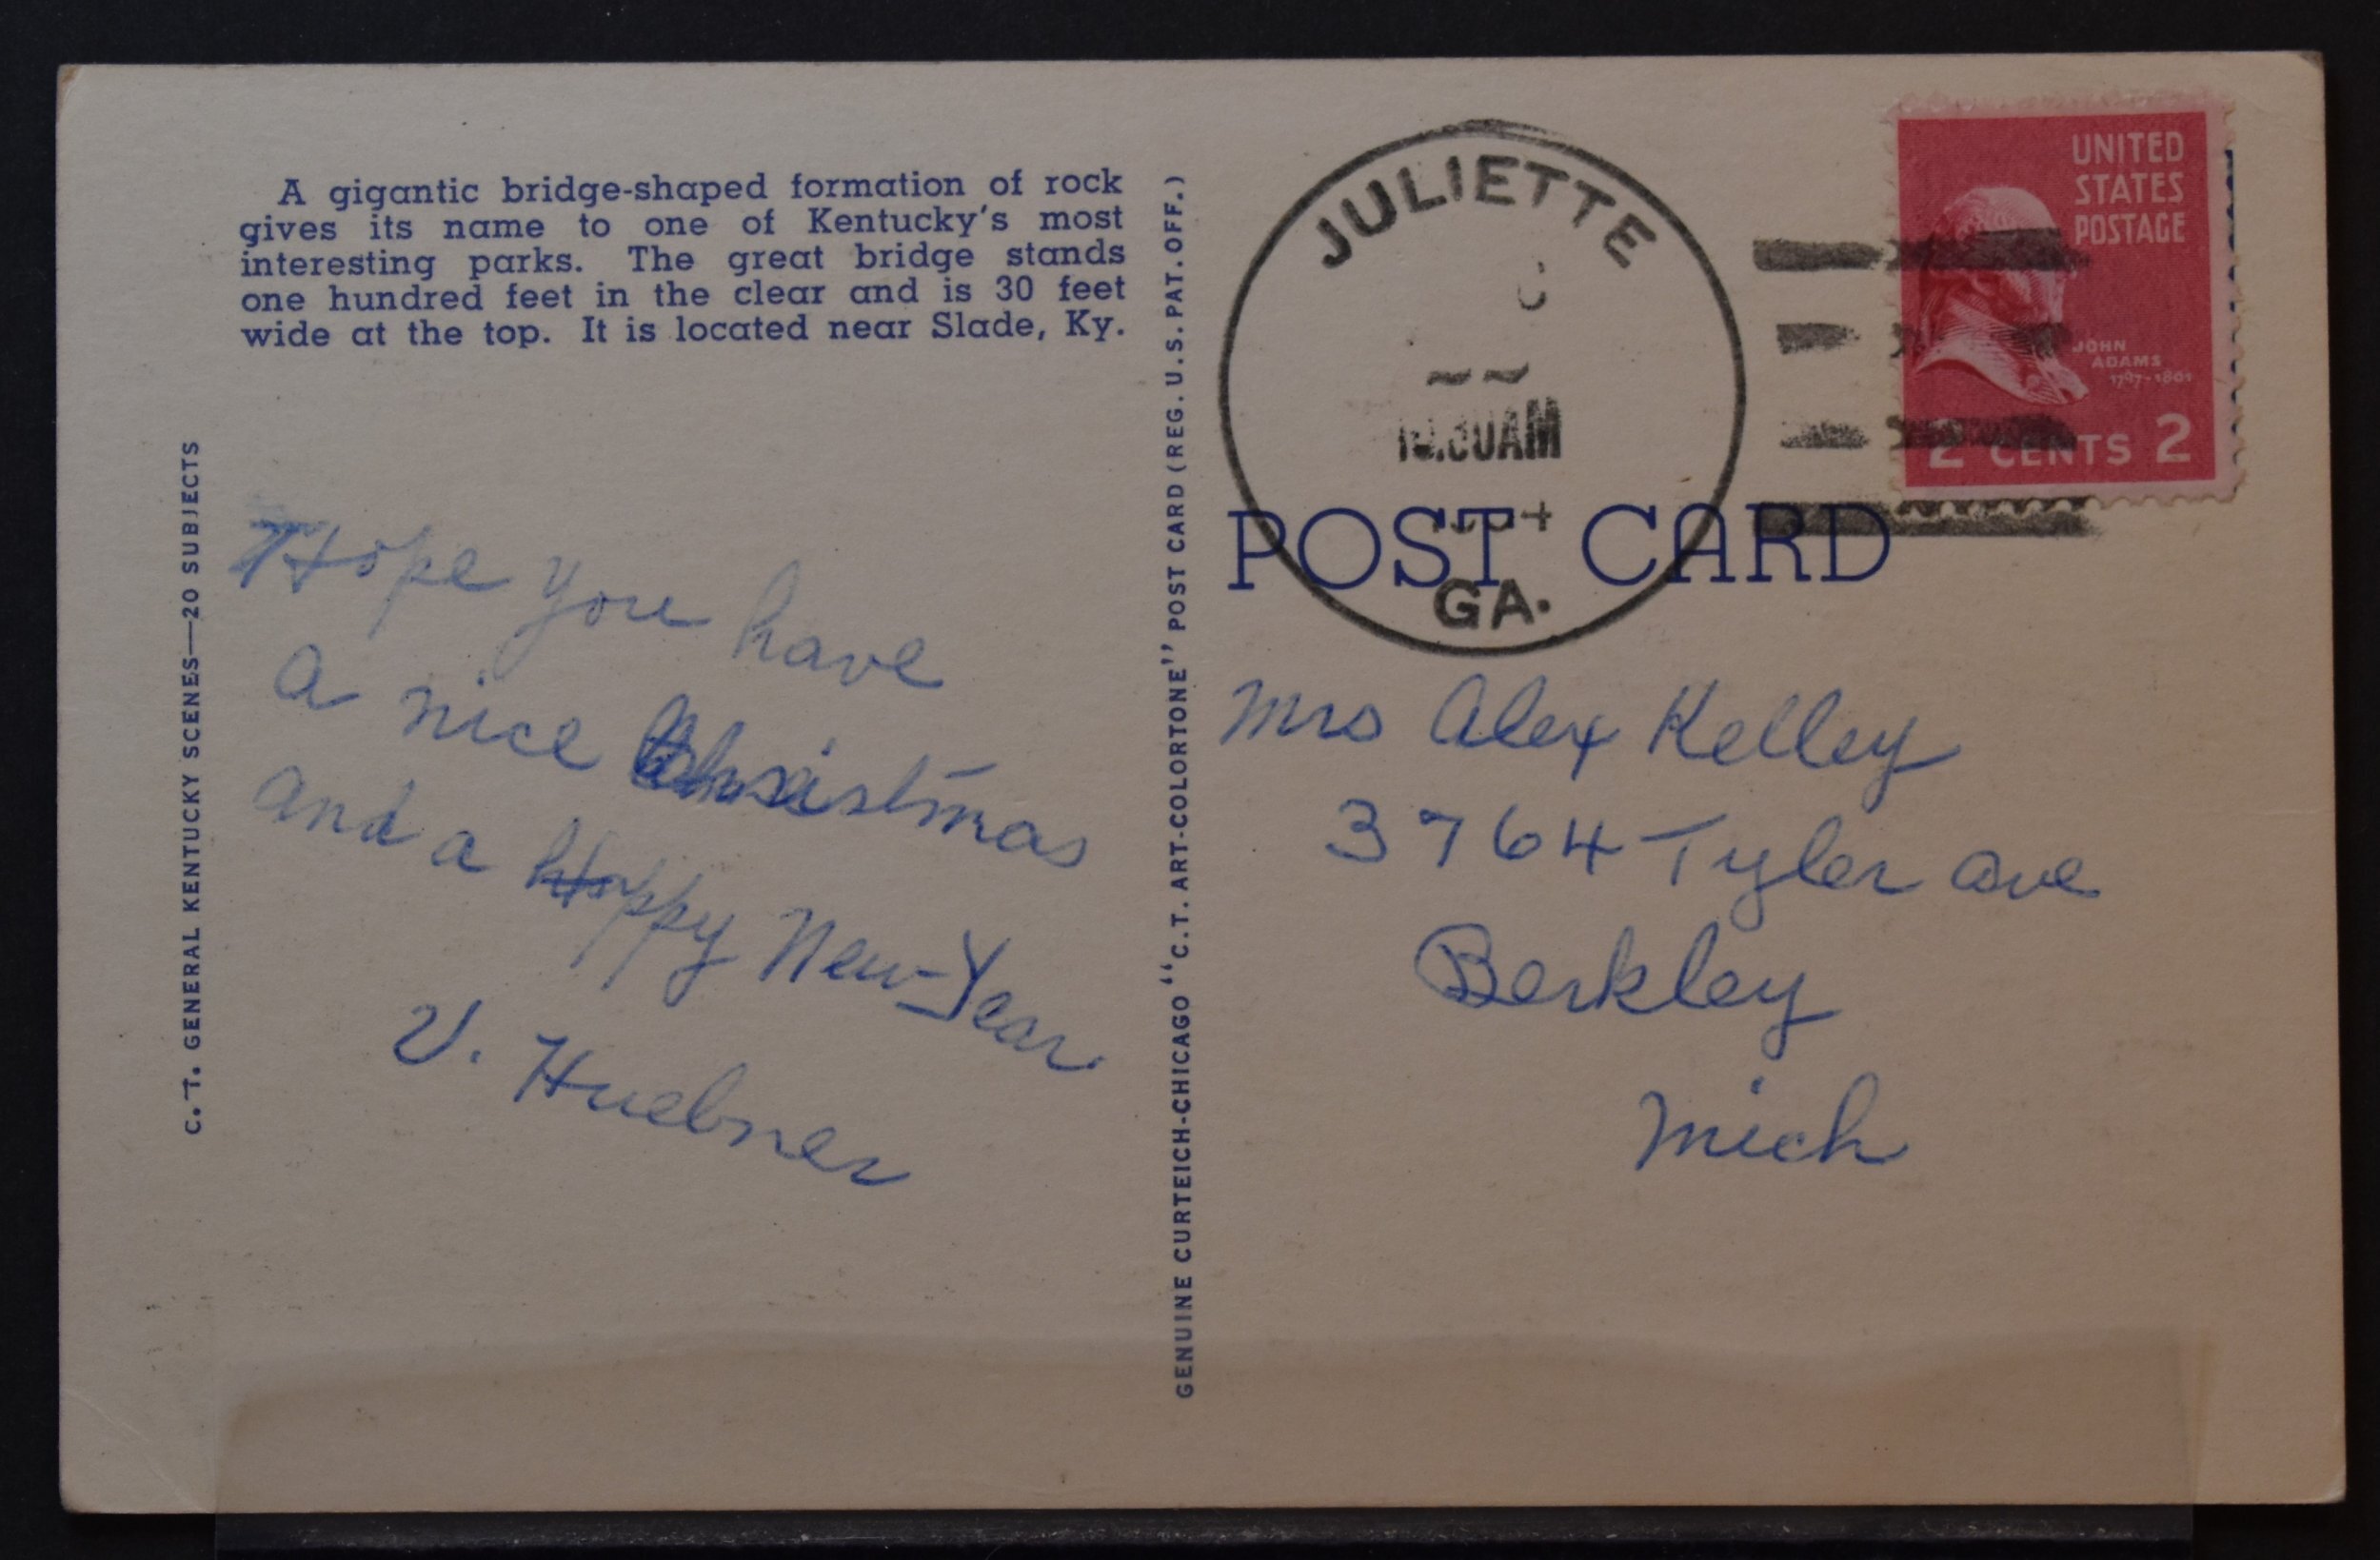 A gigantic bridge-shaped formation of rock
gives its name to one of Kentucky's most
interesting parks. The great bridge stands
one hundred feet in the clear and is 30 feet
wide at the top. It is located near Slade, Ky.
C. T. GENERAL KENTUCKY SCENES—20 SUBJECTS
Hope you have
a nice Christmas
and a Happy New-Year
V. Huebner
GENUINE CURTEICH-CHICAGO "C.T. ART-COLORTONE" POST CARD (REG. U.S. PAT. OFF.)
JULIETTE
AM
GA.
UNITED
STATES
POSTAGE
JOHN
ADAMS
1797-1801
2 CENTS 2
POST CARD
Mrs Alex Kelley
3764 Tyler ave
Berkley
Mich